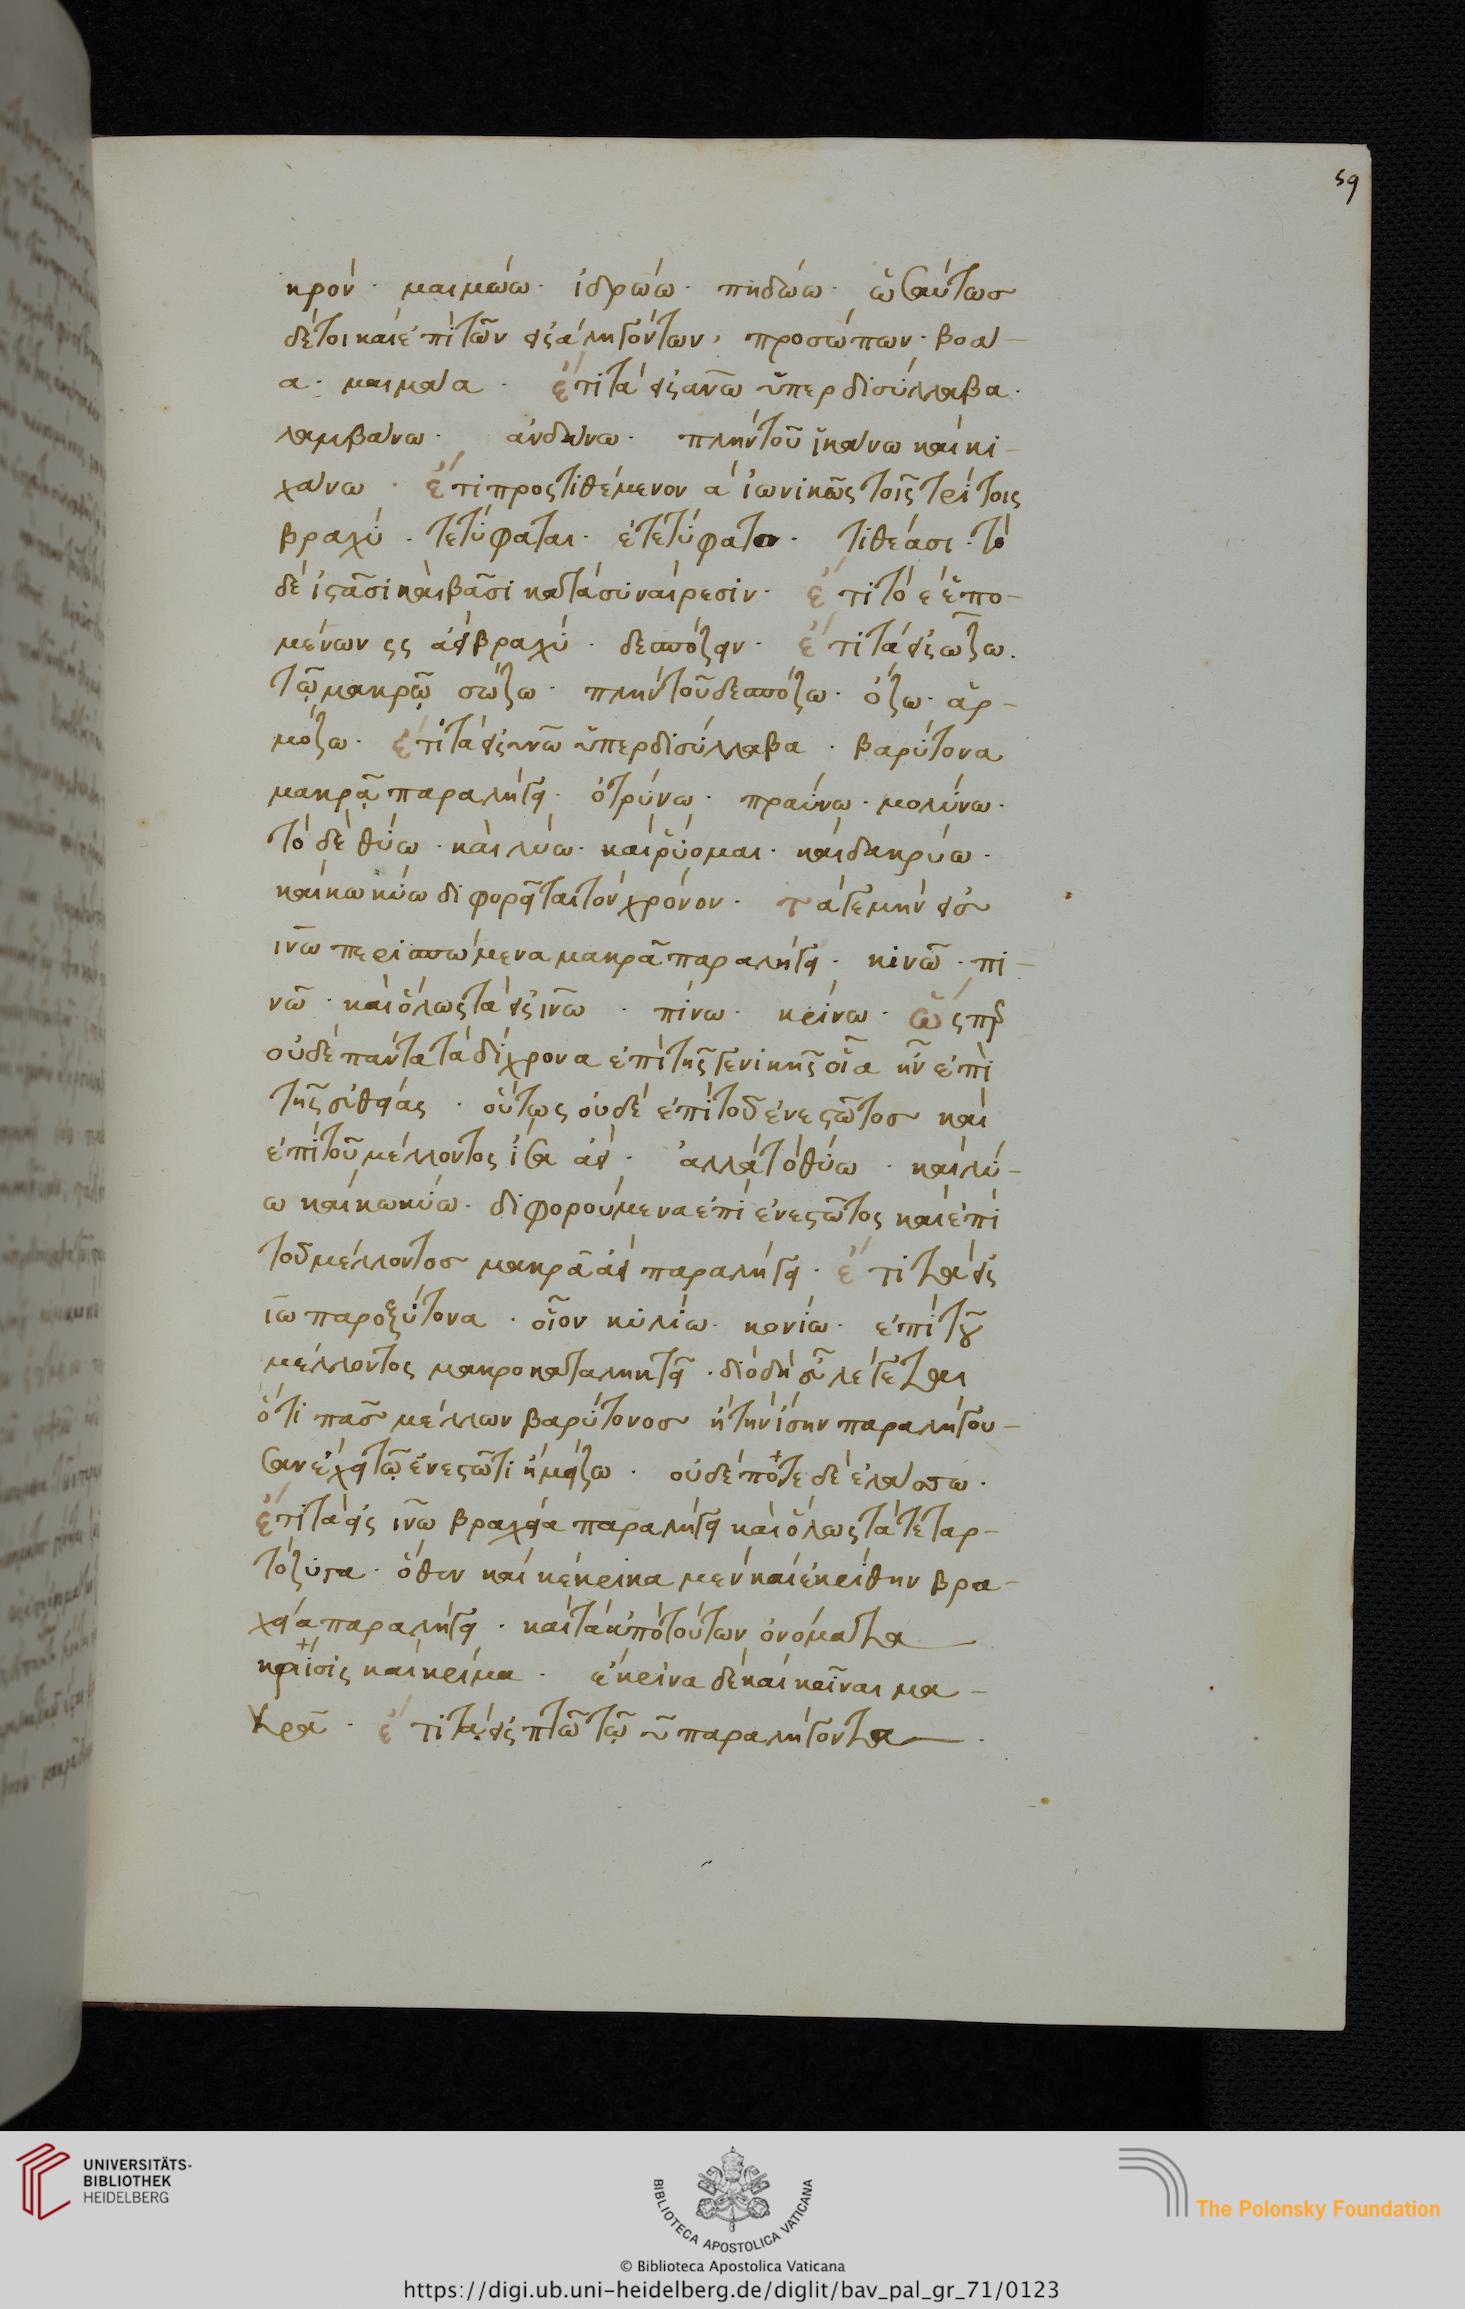 59
κρόν · μαιμώω · ἱδρώω · πηδώω · ὡσαύτωσ
δέ τοι καὶ ἐπὶ τῶν εἰς α ληγόντων, προσώπων · βοά-
α · μαιμάα · ἔτι τὰ εἰς ανω ὑπερδισύλλαβα ·
λαμβάνω · ἁνδάνω · πλὴν τοῦ ἱκάνω καὶ κι-
χάνω · ἔτι προςτιθέμενον α ἰωνικῶς τοῖς τρίτοις
βραχύ · τετύφαται · ἐτετύφατο · τιθέασι · τὸ
δὲ ἱστᾶσι καὶ βᾶσι κατὰ συναίρεσιν · ἔτι τὸ ε ἑπο-
μένων σς ἀεὶ βραχύ · δεσπόζειν · ἔτι τὰ εἰς ωζω.
τῷ μακρῷ σώζω · πλὴν τοῦ δεσπόζω · ὄζω · ἁρ-
μόζω · ἔτι τὰ εἰς υνω ὑπερδισύλλαβα · βαρύτονα
μακρᾷ παραλήγει · ὀτρύνω · πραΰνω · μολύνω ·
τὸ δὲ θύω · καὶ λύω · καὶ ῥύομαι · καὶ δακρύω ·
καὶ κωκύω διφορεῖται τὸν χρόνον · τά γε μὴν εἰσ
ινω περισπώμενα μακρᾷ παραλήγει · κινῶ · πι-
νῶ · καὶ ὅλως τὰ εἰς ινω · πίνω · κρίνω · ὥςπερ
οὐδὲ πάντα τὰ δίχρονα ἐπὶ τῆς γενικῆς οἷα ἦν ἐπὶ
τῆς εὐθείας · οὕτως οὐδὲ ἐπὶ τοῦ ἐνεστῶτοσ καὶ
ἐπὶ τοῦ μέλλοντος ἴσα ἀεί · ἀλλὰ τὸ θύω · καὶ λύ-
ω καὶ κωκύω · διφορούμενα ἐπὶ ἐνεστῶτος καὶ ἐπὶ
τοῦ μέλλοντοσ μακρᾷ ἀεὶ παραλήγει · ἔτι τὰ εἰς
ιω παροξύτονα · οἷον κυλίω · κονίω · ἐπὶ τοῦ
μέλλοντος μακροκαταληκτεῖ · διὸ δὴ λέγεται
ὅτι πᾶσ μέλλων βαρύτονοσ ἢ τὴν ἴσην παραλήγου-
σαν ἔχει τῷ ἐνεστῶτι ἢ μείζω · οὐδέποτε δὲ ἐλάσσω ·
ἔτι τὰ εἰς ινω βραχεία παραλήγει καὶ ὅλως τὰ τεταρ-
τόζυγα · ὅθεν καὶ κέκρικα μὲν καὶ ἐκρίθην βρα-
χεία παραλήγει · καὶ τὰ ἀπὸ τούτων ὀνόματα
κρίσις καὶ κρίμα · ἔκρινα δὲ καὶ κρῖναι μα-
κρᾷ · ἔτι τὰ εἰς πτω τῷ υ παραλήγοντα
UNIVERSITÄTS-
BIBLIOTHEK
HEIDELBERG
BIBLIOTECA APOSTOLICA VATICANA
The Polonsky Foundation
© Biblioteca Apostolica Vaticana
https://digi.ub.uni-heidelberg.de/diglit/bav_pal_gr_71/0123